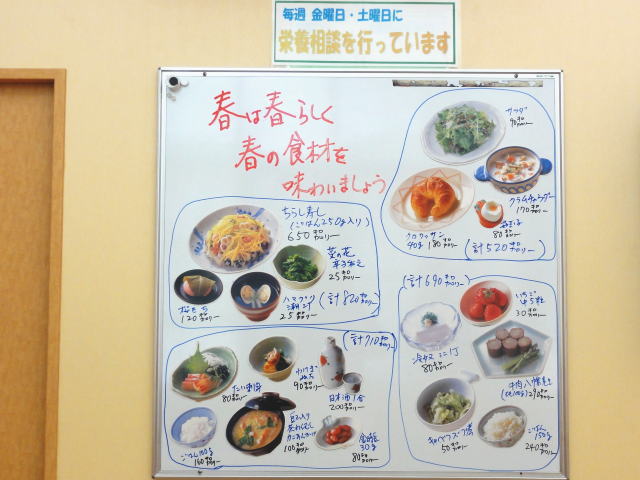 毎週 金曜日・土曜日に
栄養相談を行っています
春は春らしく
春の食材を
味わいましょう
ちらし寿し
(ごはん250g入り)
650キロカロリー
菜の花
辛子あえ
25キロカロリー
桜もち
120キロカロリー
ハマグリ
潮汁
25キロカロリー
(計820キロカロリー)
サラダ
90キロカロリー
クラムチャウダー
170キロカロリー
クロワッサン
40g 180キロカロリー
80キロカロリー
(計520キロカロリー)
(計710キロカロリー)
たい刺身
80キロカロリー
90キロカロリー
日本酒1合
200キロカロリー
ごはん100g
160キロカロリー
茶わんむし
100キロカロリー
30g
80キロカロリー
(計690キロカロリー)
いちご
中5粒
30キロカロリー
冷奴 ミニ1丁
80キロカロリー
牛肉八幡巻
290キロカロリー
キャベツ
50キロカロリー
ごはん
150g
240キロカロリー